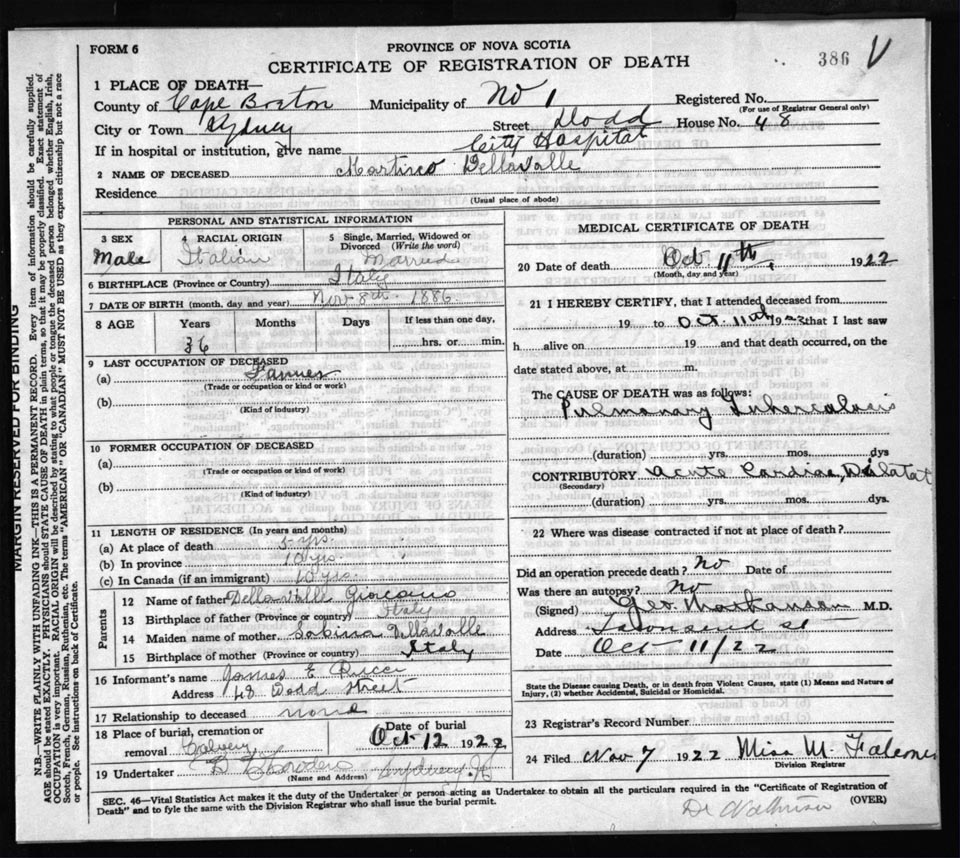 FORM 6
PROVINCE OF NOVA SCOTIA
CERTIFICATE OF REGISTRATION OF DEATH
386 V
1 PLACE OF DEATH—
County of Cape Breton Municipality of No 1 Registered No.
(For use of Registrar General only)
City or Town Sydney Street Dodd House No. 48
If in hospital or institution, give name City Hospital
2 NAME OF DECEASED Martino Dellavalle
Residence
(Usual place of abode)
PERSONAL AND STATISTICAL INFORMATION
3 SEX
Male
4 RACIAL ORIGIN
Italian
5 Single, Married, Widowed or
Divorced (Write the word)
Married
6 BIRTHPLACE (Province or Country) Italy
7 DATE OF BIRTH (month, day, and year) Nov 8th 1886
8 AGE Years Months Days If less than one day,
36 hrs. or min.
9 LAST OCCUPATION OF DECEASED
(a) Farmer
(Trade or occupation or kind or work)
(b)
(Kind of industry)
10 FORMER OCCUPATION OF DECEASED
(a)
(Trade or occupation or kind or work)
(b)
(Kind of industry)
11 LENGTH OF RESIDENCE (In years and months)
(a) At place of death 5 yrs.
(b) In province 10 yrs.
(c) In Canada (if an immigrant) 10 yrs.
Parents
12 Name of father Dellavalle
13 Birthplace of father (Province or country) Italy
14 Maiden name of mother Sabina Dellavalle
15 Birthplace of mother (Province or country) Italy
16 Informant's name James E Ricci
Address 48 Dodd Street
17 Relationship to deceased none
18 Place of burial, cremation or
removal Calvery
Date of burial
Oct 12 1922
19 Undertaker
(Name and Address)
MEDICAL CERTIFICATE OF DEATH
20 Date of death Oct 11th, 1922
(Month, day and year)
21 I HEREBY CERTIFY, that I attended deceased from
19 to Oct. 11th 1922 that I last saw
h alive on 19 and that death occurred, on the
date stated above, at m.
The CAUSE OF DEATH was as follows:
Pulmonary Tuberculosis
(duration) yrs. mos. dys
CONTRIBUTORY Acute Cardiac Dilatat
(Secondary)
(duration) yrs. mos. dys.
22 Where was disease contracted if not at place of death?
Did an operation precede death? No Date of
Was there an autopsy? No
(Signed) Geo M.D.
Address Townsend St
Date Oct 11/22
State the Disease causing Death, or in death from Violent Causes, state (1) Means and Nature of
Injury, (2) whether Accidental, Suicidal or Homicidal.
23 Registrar's Record Number
24 Filed Nov 7 1922 Miss M.
Division Registrar
SEC. 46—Vital Statistics Act makes it the duty of the Undertaker or person acting as Undertaker to obtain all the particulars required in the "Certificate of Registration of
Death" and to fyle the same with the Division Registrar who shall issue the burial permit.
(OVER)
MARGIN RESERVED FOR BINDING
N.B.—WRITE PLAINLY WITH UNFADING INK—THIS IS A PERMANENT RECORD. Every item of information should be carefully supplied.
AGE should be stated EXACTLY. PHYSICIANS should STATE CAUSE OF DEATH in plain terms, so that it may be properly classified. Exact statement of
OCCUPATION is very important. RACIAL ORIGIN will be described by stating to what people or tongue the deceased person belonged whether English, Irish,
Scotch, French, German, Russian, Ruthenian, etc. The terms "AMERICAN" OR "CANADIAN" MUST NOT BE USED as they express citizenship but not a race
or people. See instructions on back of Certificate.